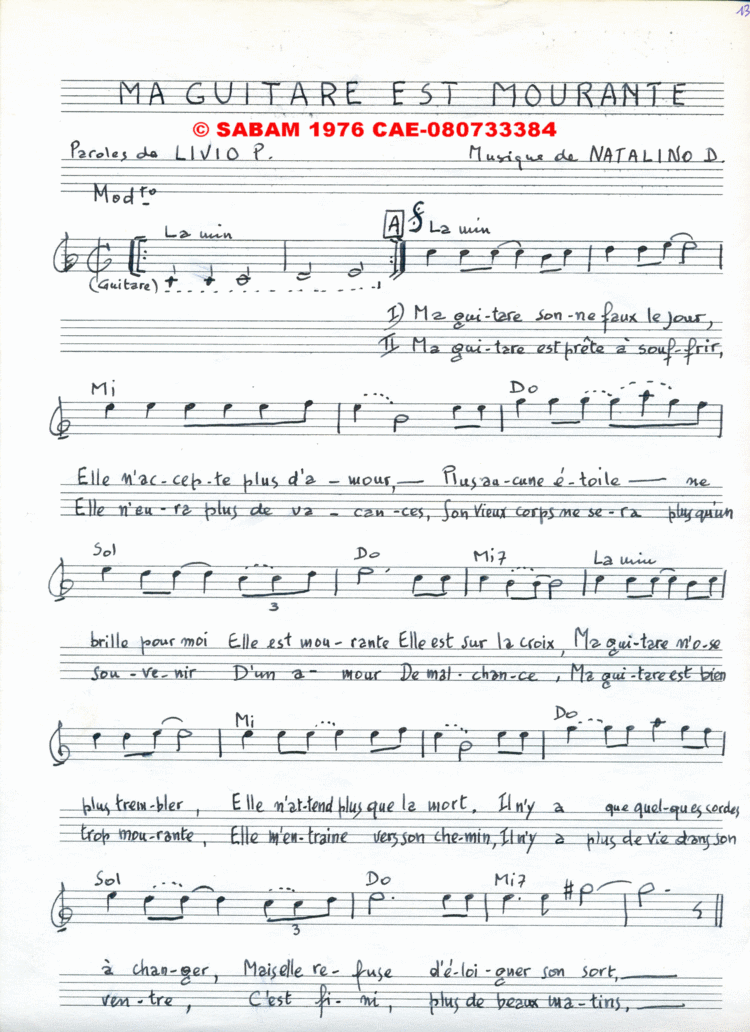 13
MA GUITARE EST MOURANTE
© SABAM 1976 CAE-080733384
Paroles de LIVIO P. Musique de NATALINO D.
Modto
La min A La min
(Guitare)
I) Ma gui-tare son-ne faux le jour,
II Ma gui-tare est prête à souf-frir,
Mi Do
Elle n'ac-cep-te plus d'a-mour,— Plus au-cune é-toile — ne
Elle n'eu-ra plus de va-can-ces, Son vieux corps me se-ra plus qu'un
Sol Do Mi7 La min
3
brille pour moi Elle est mou-rante Elle est sur la croix, Ma gui-tare n'o-se
sou-ve-nir D'un a-mour De mal-chan-ce, Ma gui-tare est bien
Mi Do
plus trem-bler, Elle n'at-tend plus que la mort. Il n'y a que quel-ques cordes
trop mou-rante, Elle m'en-traine vers son che-min, Il n'y a plus de vie dans son
Sol Do Mi7
3
à chan-ger, Mais elle re-fuse d'é-loi-gner son sort,—
ven-tre, C'est fi-ni, plus de beaux ma-tins,—